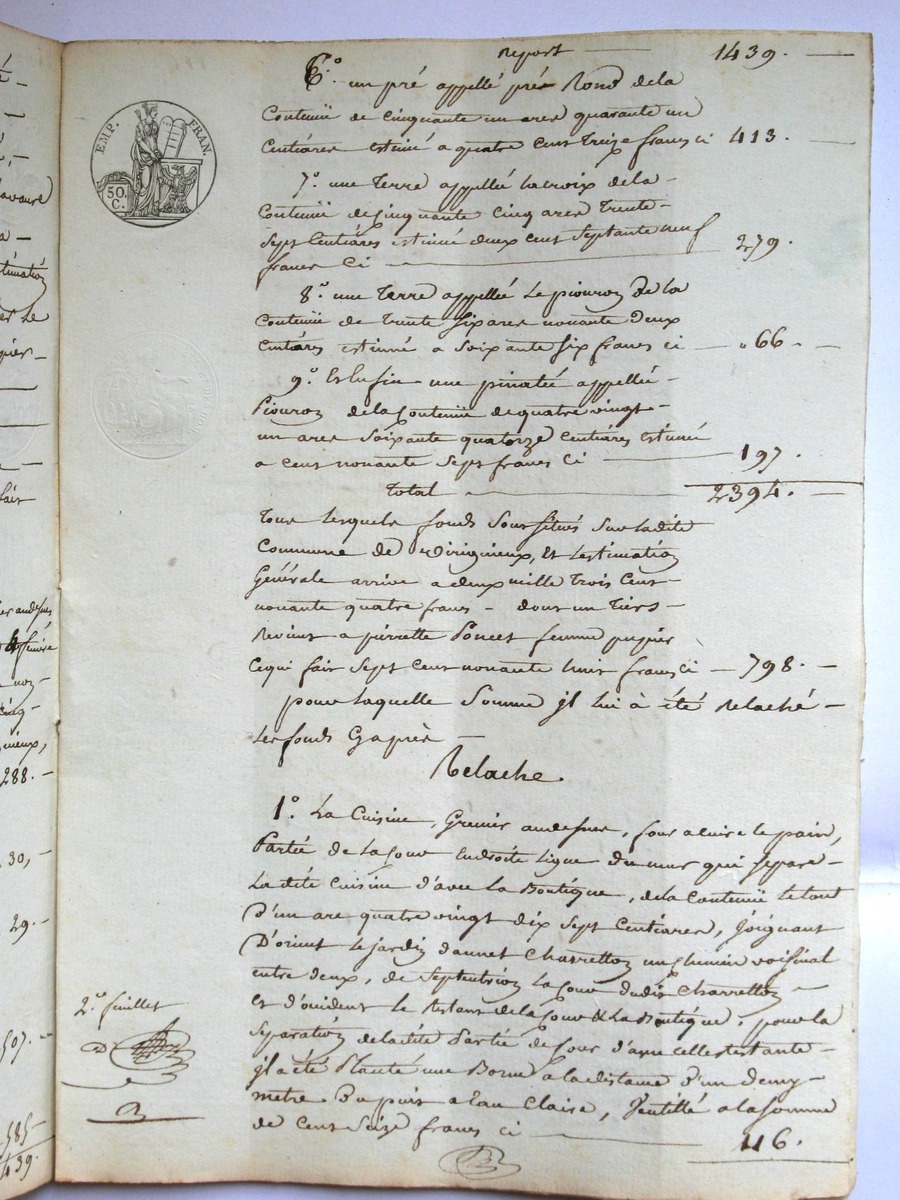 Report — 1439. —
6.° un pré appellé prés Rond dela
Contenüe de Cinquante un ares quarante un
Centiares estimé a quatre cent Treize francs ci 413. —
7.° une Terre appellée lacroix dela —
Contenüe de Cinquante Cinq ares Trente —
Sept Centiares estimé deux cent Septante neuf
francs Ci — 279. —
8.° une Terre appellée Le piouroz de la
Contenüe de Trente Six ares nonante Deux
Centiares estimé a Soixante Six francs ci — " 66 — —
9.° Et Enfin une pinatée appellée —
Piouroz dela Contenüe de quatre vingt —
un ares Soixante quatorze Centiares Estimé
a cent nonante Sept francs Ci — 197. —
Total — 2394. —
Tous lesquels fonds Sont Situés Sur ladite
Commune de Virigneux, Et Lestimation
Générale arrive a deux mille Trois Cent —
nonante quatre francs — dont un Tiers —
Revient a pierrette Poncet femme pupier
Ce qui fait Sept Cent nonante huit francs Ci — 798. —
pour laquelle Somme jl lui à été Relaché —
Les fonds Cyaprès —
Relache.
1.° La Cuisine, Grenier audessus, four a cuire le pain,
Partie de la Cour En droite Ligne du mur qui Separe —
La dite Cuisine d'avec La Boutique, de la Contenüe le tout
D'un are quatre vingt dix Sept Centiares, Joignant
D'orient le jardin dannet Charretton un chemin voisinal
entre deux, de Septentrion la Cour dudit Charretton —
Et d'occident le Restant de la Cour & La Boutique, pour la
Séparation de la dite Partie de Cour d'avec celle restante —
jl a été Planté une Borne a la distance d'un Demy —
metre Du puit a Eau Claire, a la Somme
de Cent Seize francs ci — 116. —
EMP. FRAN.
50. C.
2.e feuillet